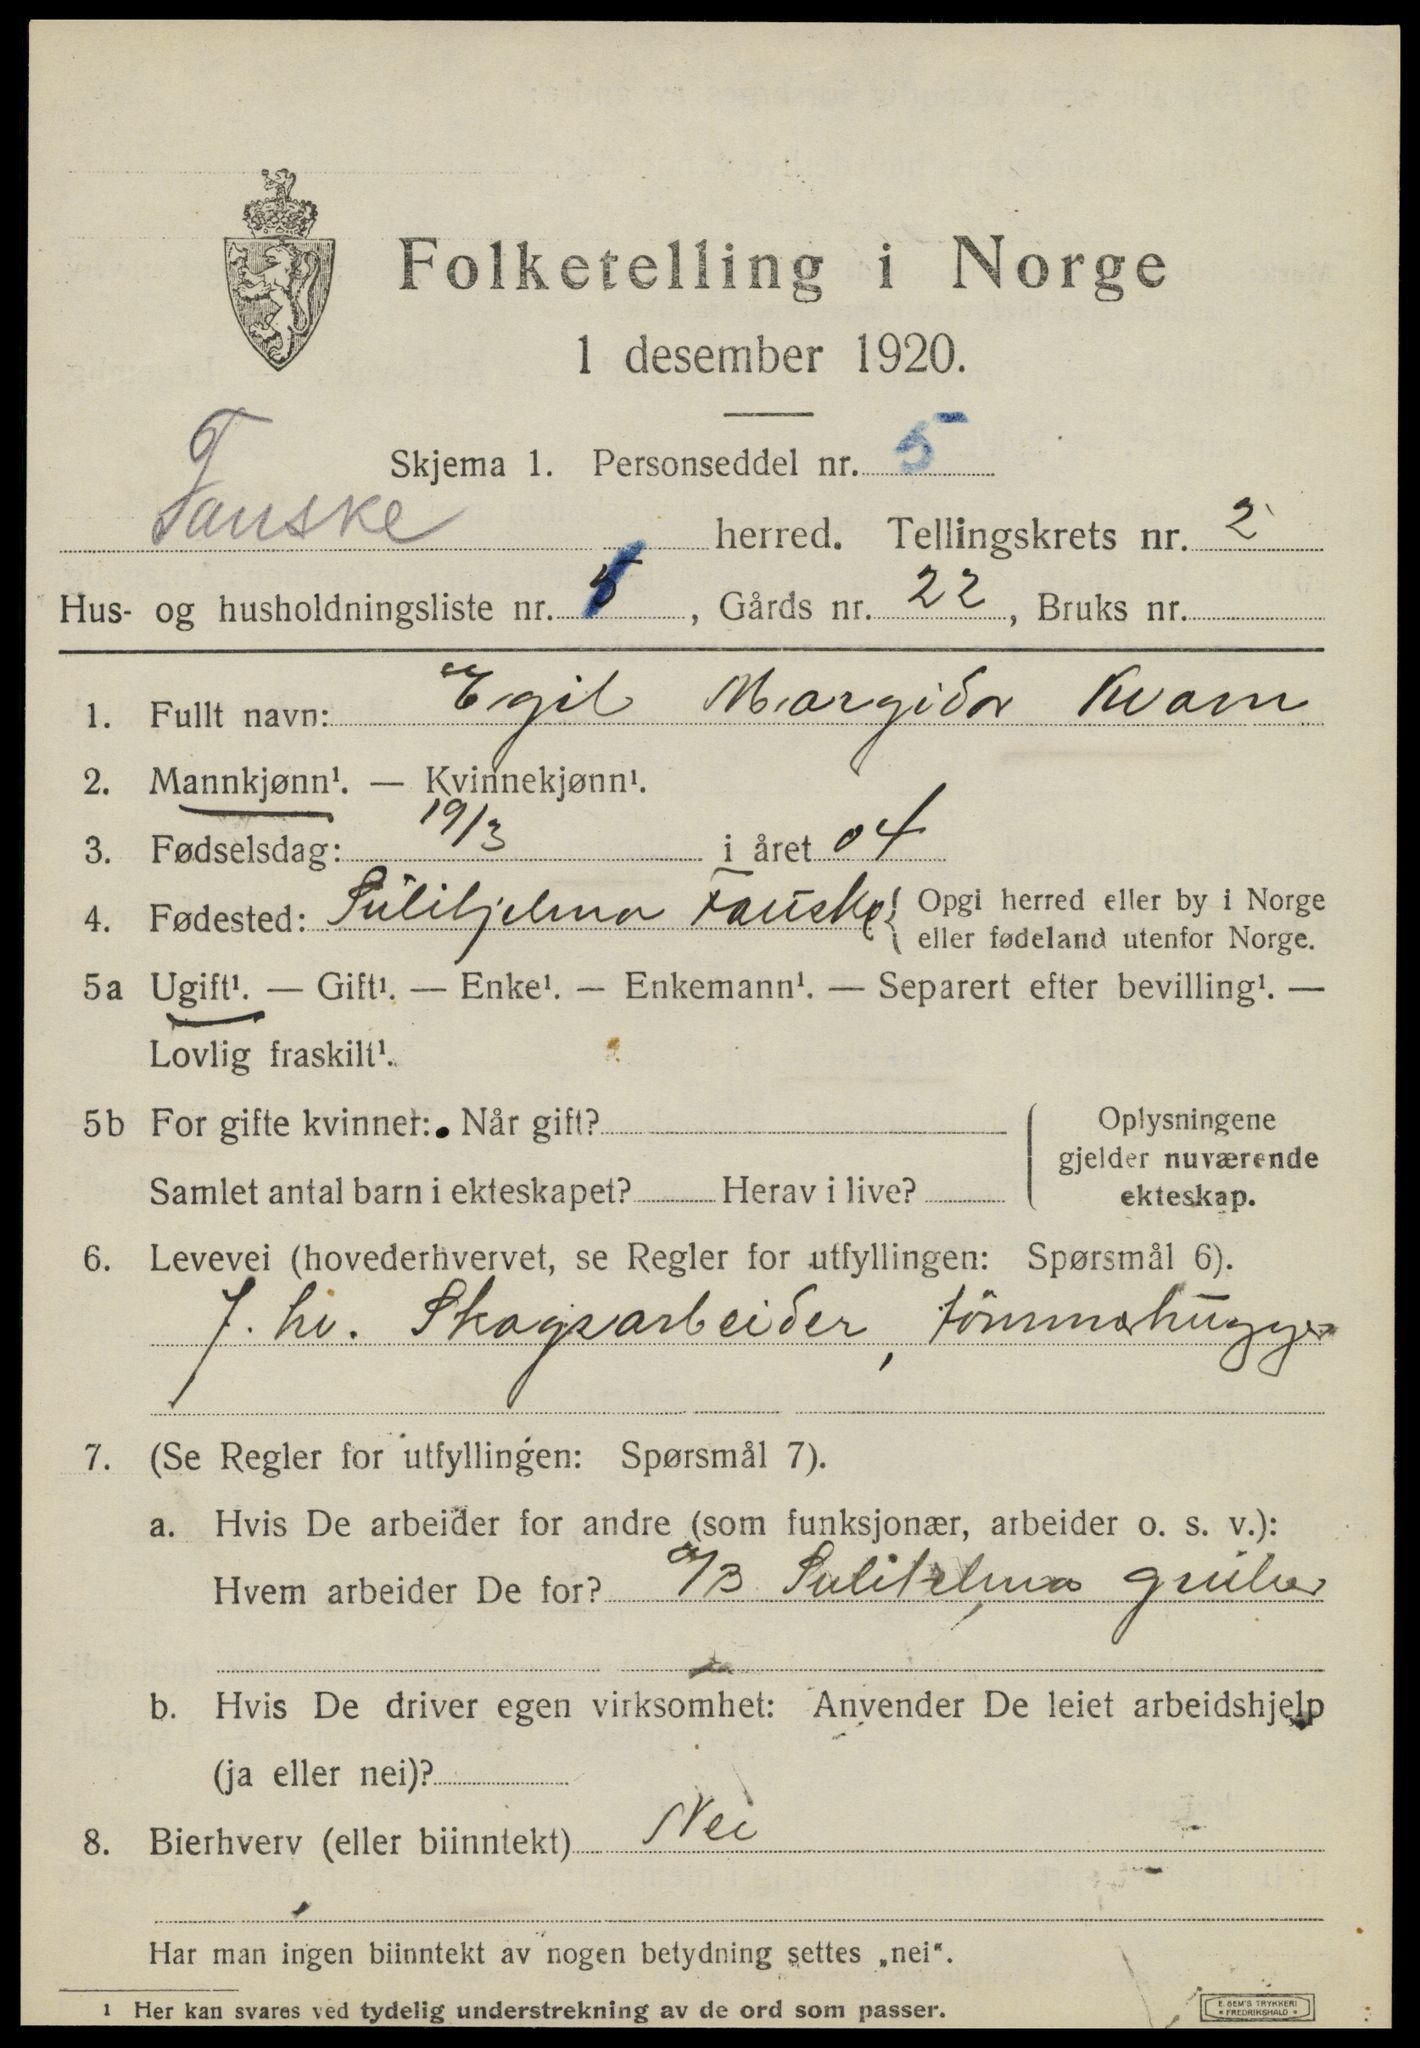 Folketelling i Norge
1 desember 1920.
Skjema 1. Personseddel nr. 5
Fauske herred. Tellingskrets nr. 2
Hus- og husholdningsliste nr. 5, Gårds nr. 22, Bruks nr.
1. Fullt navn: Egil Margido Kvam
2. Mannkjønn¹. — Kvinnekjønn¹.
3. Fødselsdag: 19/3 i året 04
4. Fødested: Sulihjelma Fauske { Opgi herred eller by i Norge
eller fødeland utenfor Norge.
5a Ugift¹. — Gift¹. — Enke¹. — Enkemann¹. — Separert efter bevilling¹. —
Lovlig fraskilt¹.
5b For gifte kvinner: Når gift?
Samlet antal barn i ekteskapet? Herav i live?
Oplysningene
gjelder nuværende
ekteskap.
6. Levevei (hovederhvervet, se Regler for utfyllingen: Spørsmål 6).
Skogsarbeider, tömmerhugger
7. (Se Regler for utfyllingen: Spørsmål 7).
a. Hvis De arbeider for andre (som funksjonær, arbeider o. s. v.):
Hvem arbeider De for? a/B Sulitelma gruber
b. Hvis De driver egen virksomhet: Anvender De leiet arbeidshjelp
(ja eller nei)?
8. Bierhverv (eller biinntekt) Nei
Har man ingen biinntekt av nogen betydning settes „nei“.
1 Her kan svares ved tydelig understrekning av de ord som passer.
E. SEM'S TRYKKERI
FREDRIKSHALD